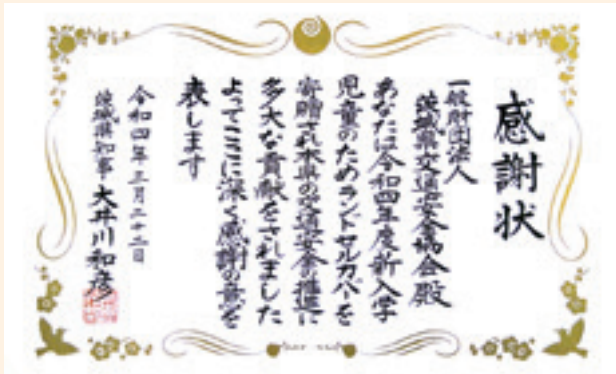 感謝状
一般財団法人
茨城県交通安全協会殿
あなたは令和四年度新入学
児童のためランドセルカバーを
寄贈され本県の交通安全の推進に
多大な貢献をされました
よってここに深く感謝の意を
表します
令和四年三月二十二日
茨城県知事 大井川和彦